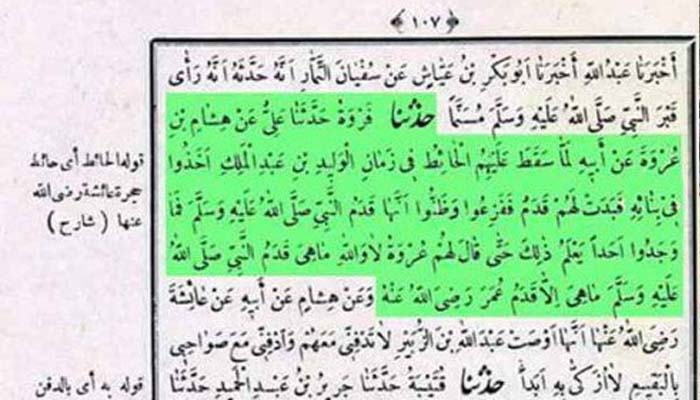 ﴿ ١٠٧ ﴾
أَخْبَرَنَا عَبْدُ اللّٰهِ أَخْبَرَنَا أَبُو بَكْرِ بْنُ عَيَّاشٍ عَنْ سُفْيَانَ التَّمَّارِ أَنَّهُ حَدَّثَهُ أَنَّهُ رَأَى
قَبْرَ النَّبِيِّ صَلَّى اللّٰهُ عَلَيْهِ وَسَلَّمَ مُسَنَّمًا حَدَّثَنَا فَرْوَةُ حَدَّثَنَا عَلِيٌّ عَنْ هِشَامِ بْنِ
عُرْوَةَ عَنْ أَبِيهِ لَمَّا سَقَطَ عَلَيْهِمُ الْحَائِطُ فِي زَمَانِ الْوَلِيدِ بْنِ عَبْدِ الْمَلِكِ أَخَذُوا
فِي بِنَائِهِ فَبَدَتْ لَهُمْ قَدَمٌ فَفَزِعُوا وَظَنُّوا أَنَّهَا قَدَمُ النَّبِيِّ صَلَّى اللّٰهُ عَلَيْهِ وَسَلَّمَ فَمَا
وَجَدُوا أَحَداً يَعْلَمُ ذٰلِكَ حَتَّى قَالَ لَهُمْ عُرْوَةُ لَا وَاللّٰهِ مَا هِيَ قَدَمُ النَّبِيِّ صَلَّى اللّٰهُ
عَلَيْهِ وَسَلَّمَ مَا هِيَ إِلَّا قَدَمُ عُمَرَ رَضِيَ اللّٰهُ عَنْهُ وَعَنْ هِشَامٍ عَنْ أَبِيهِ عَنْ عَائِشَةَ
رَضِيَ اللّٰهُ عَنْهَا أَنَّهَا أَوْصَتْ عَبْدَ اللّٰهِ بْنَ الزُّبَيْرِ لَا تَدْفِنِّي مَعَهُمْ وَادْفِنِّي مَعَ صَوَاحِبِي
بِالْبَقِيعِ لَا أُزَكَّى بِهِ أَبَداً حَدَّثَنَا قُتَيْبَةُ حَدَّثَنَا جَرِيرُ بْنُ عَبْدِ الْحَمِيدِ حَدَّثَنَا
قوله الحائط أى حائط
حجرة عائشة رضى الله
عنها (شارح)
قوله به أى بالدفن